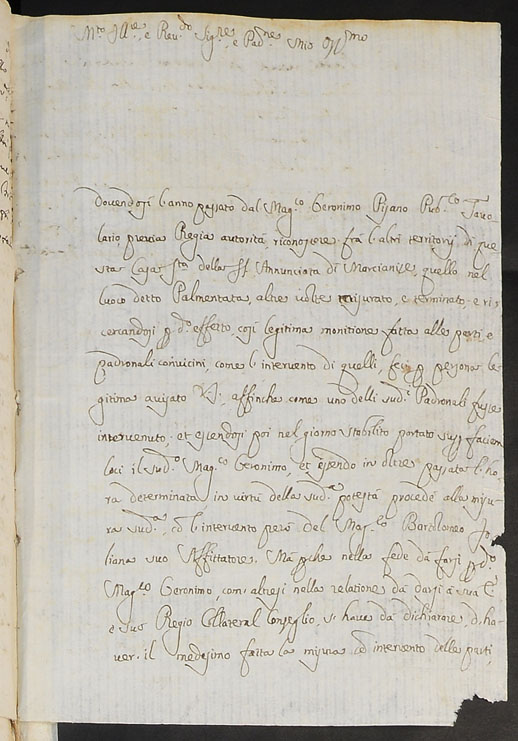 M.to Ill.re e Rev.do Sig.re e Pad.ne mio Oss.mo
Dovendosi l'anno passato dal Mag.co Geronimo Pisano Pub.co Tavo-
lario previa Regia autorità riconoscere frà l'altri territorij di que
sta Casa S.ta della SS. Annunciata di Marcianise, quello nel
luoco detto Palmentata, altre volte misurato, e terminato, e ri
cercandosi p d.o effetto, così legitima monitione fatta alle parti, e
padronali convicini, come l'intervento di quelli, feci p persona le
gitima avisato V.S. affinche come uno delli sud.i Padronali fusse
intervenuto, et essendosi poi nel giorno stabilito portato sup faciem
loci il sud.o Mag.co Geronimo, et essendo in oltre passata l'ho
ra determinata in virtù della sud.a potestà procedè alla misu-
ra sud.a, cō l'intervento però del Mag.co Bartolomeo
liana suo Affittatore. Mà pche nella fede da farsi p d.o
Mag.co Geronimo, com' altresi nella relatione da darsi à sua E.
e suo Regio Collateral Conseglio, si have da dichiarare, d'ha-
ver il medesimo fatta la misura cō intervento delle parti,